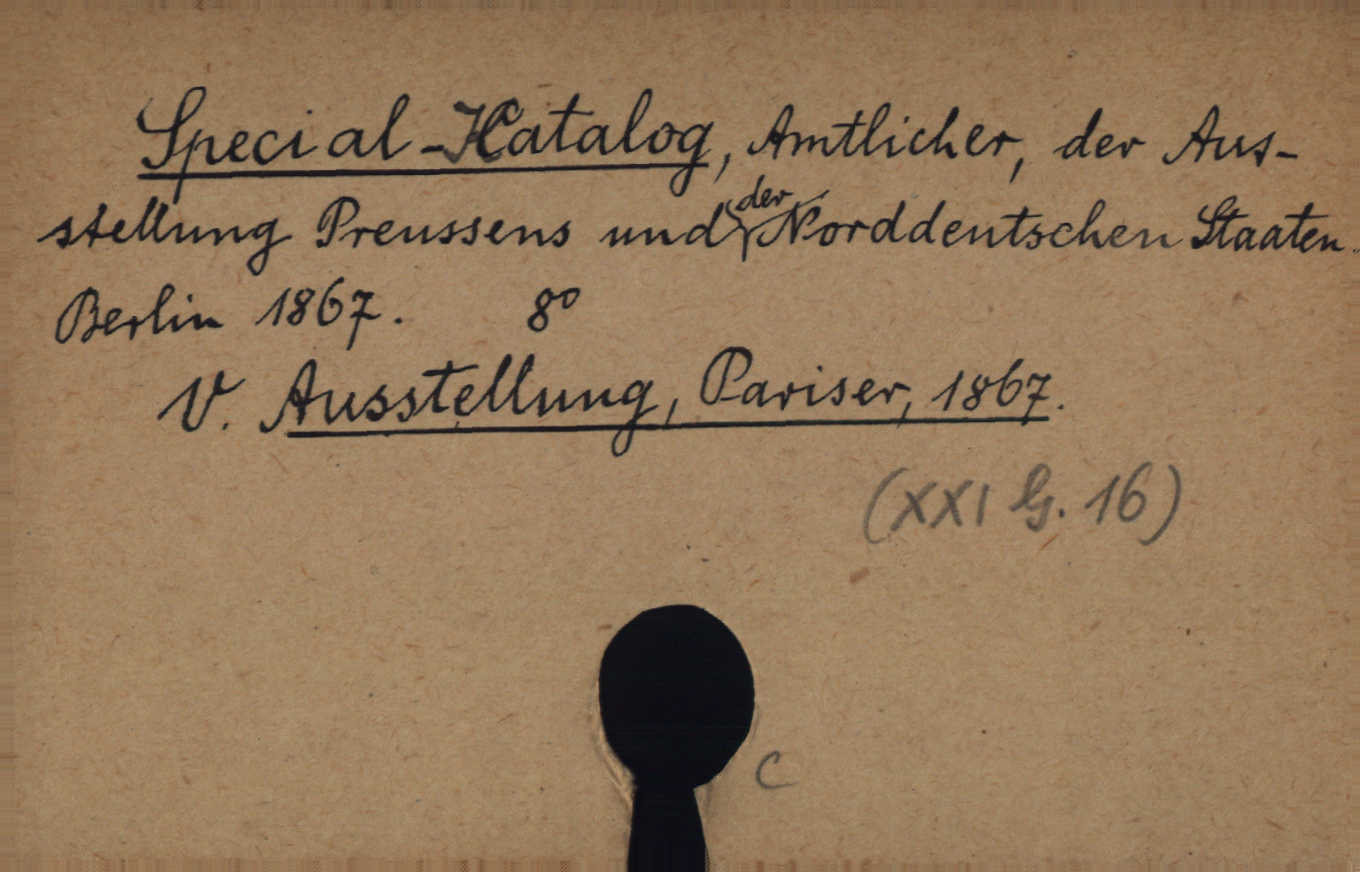 Special-Katalog, Amtlicher, der Aus-
stellung Preussens und der Norddeutschen Staaten.
Berlin 1867. 8°
V. Ausstellung, Pariser, 1867.
(XXI G. 16)
C